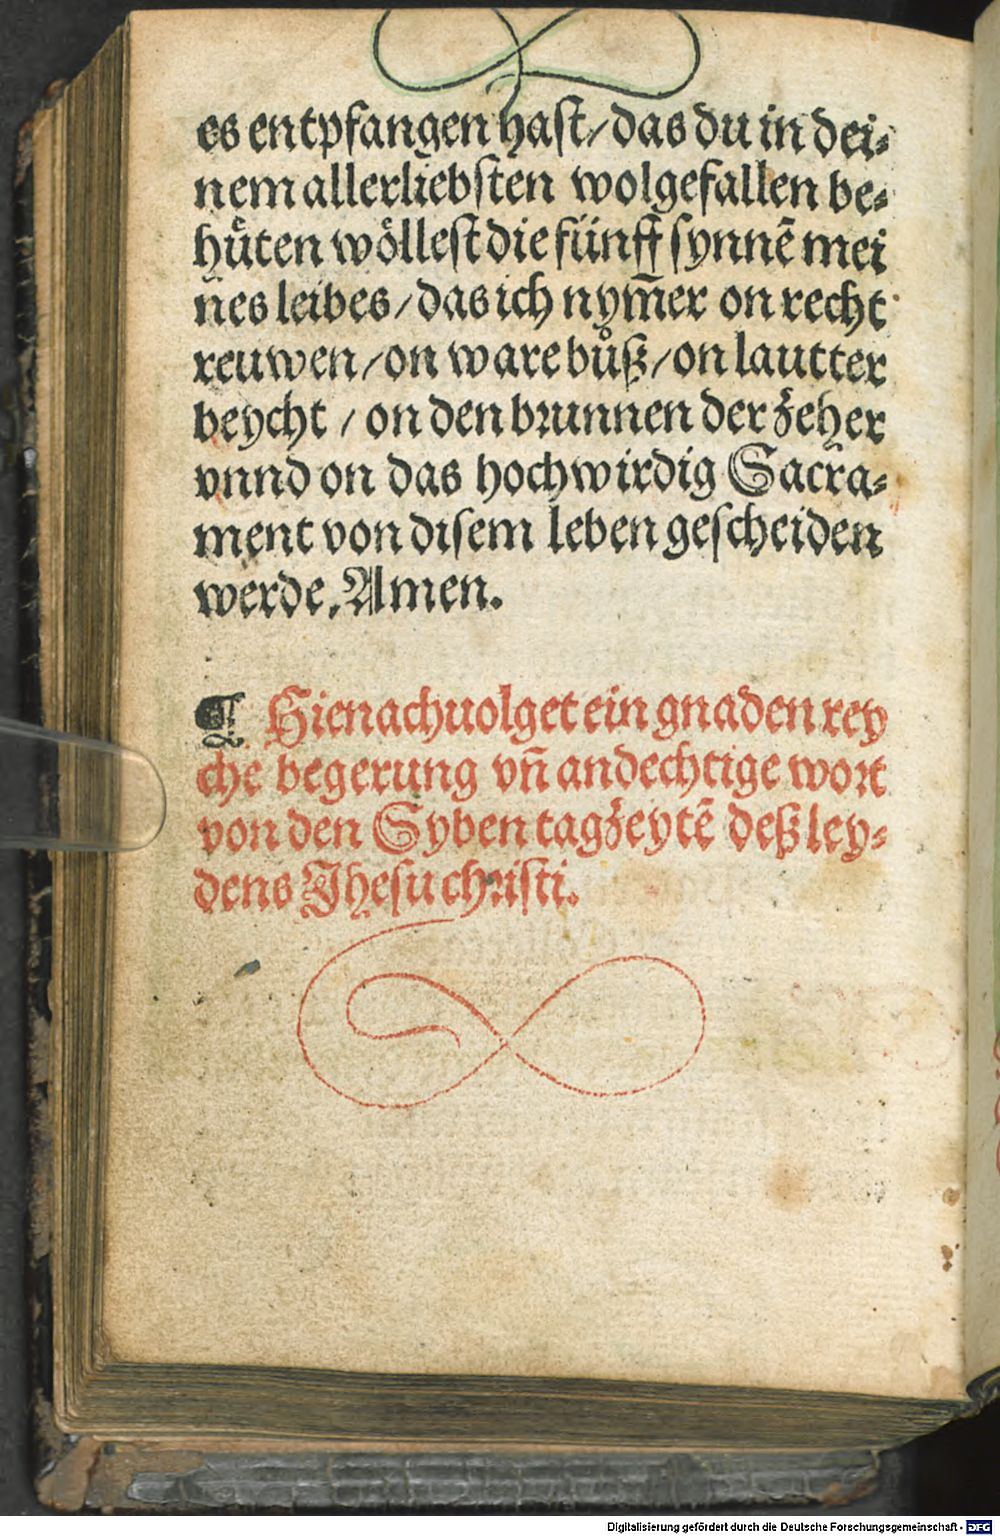 es entpfangen haſt/das du in dei⸗
nem allerliebſten wolgefallen be⸗
hüten wölleſt die fünff ſynnē mei
nes leibes/das ich nym̄er on recht
reuwen/on ware bůß/on lautter
beycht / on den brunnen der zeher
vnnd on das hochwirdig Sacra⸗
ment von diſem leben geſcheiden
werde. Amen.
¶ Hienachuolget ein gnaden rey
che begerung vn̄ andechtige wort
von den Syben tagzeytē deß ley⸗
dens Jheſu chriſti.
Digitalisierung gefördert durch die Deutsche Forschungsgemeinschaft - DFG